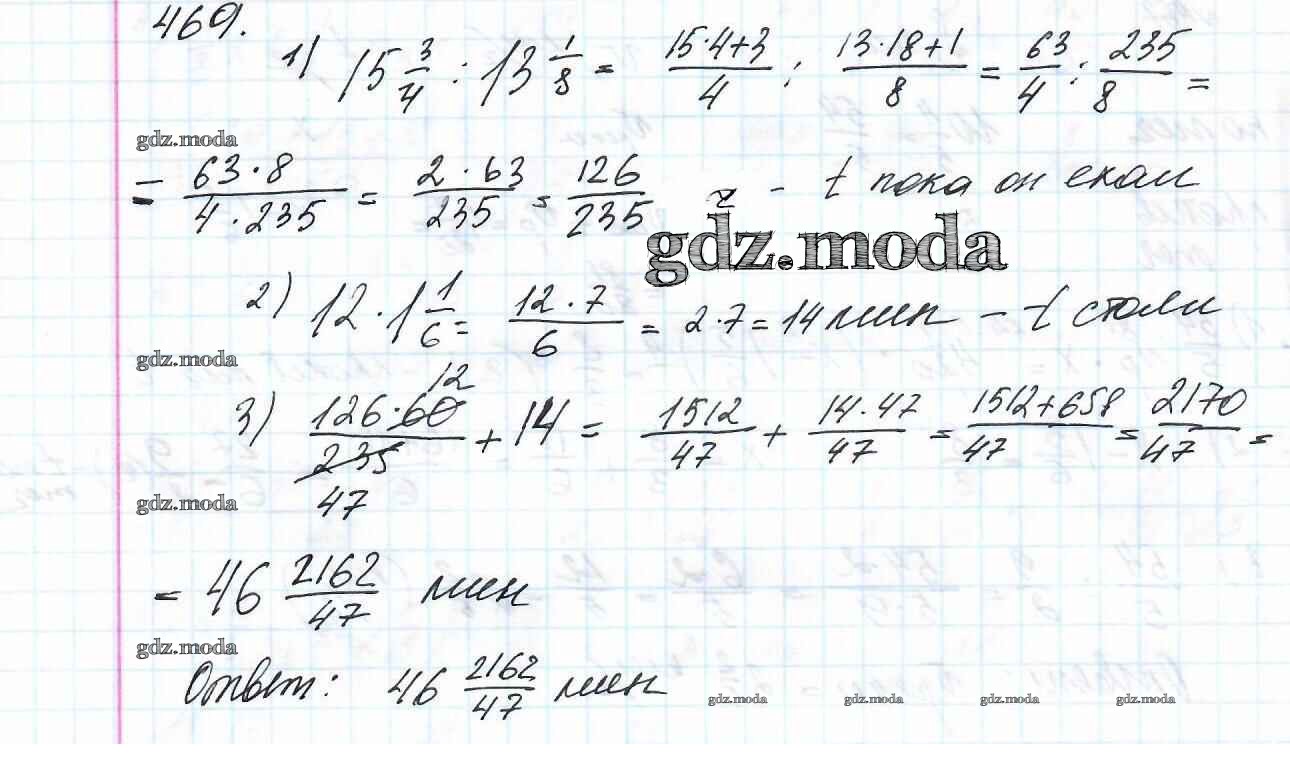 469.
1) 15 3/4 : 13 1/8 = (15·4+3)/4 : (13·18+1)/8 = 63/4 : 235/8 =
gdz.moda
= (63·8)/(4·235) = (2·63)/235 = 126/235 ч - t пока он ехал
gdz.moda
2) 12·1 1/6 = (12·7)/6 = 2·7 = 14 мин - t стоял
gdz.moda
3) (126·60 12)/(235 47) + 14 = 1512/47 + (14·47)/47 = (1512+658)/47 = 2170/47 =
gdz.moda
= 46 2162/47 мин
gdz.moda
Ответ: 46 2162/47 мин
gdz.moda gdz.moda gdz.moda gdz.moda